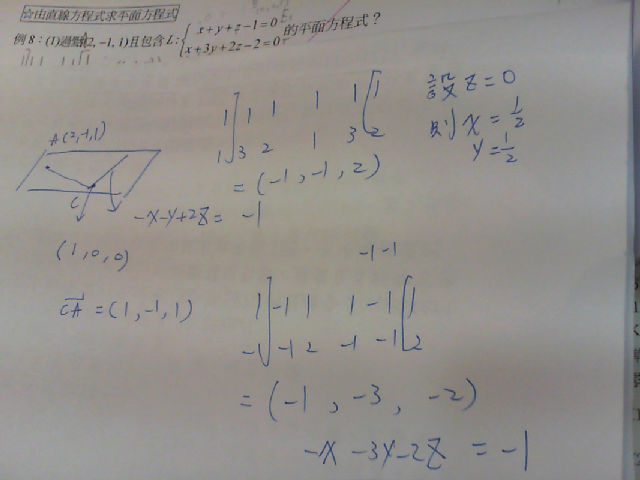 ☆由直線方程式求平面方程式
例 8：(1)過點(2, −1, 1)且包含 L：{ x+y+z−1=0
x+3y+2z−2=0 的平面方程式？
設 Z=0
則 X=1/2
Y=1/2
1 1 1 1 1 1
1 3 2 1 3 2
=(-1,-1,2)
-X-Y+2Z= -1
A(2,-1,1)
C
(1,0,0)
CA =(1,-1,1)
-1 -1
1 -1 1 1 -1 1
-1 -1 2 -1 -1 2
=(-1, -3, -2)
-X-3Y-2Z = -1